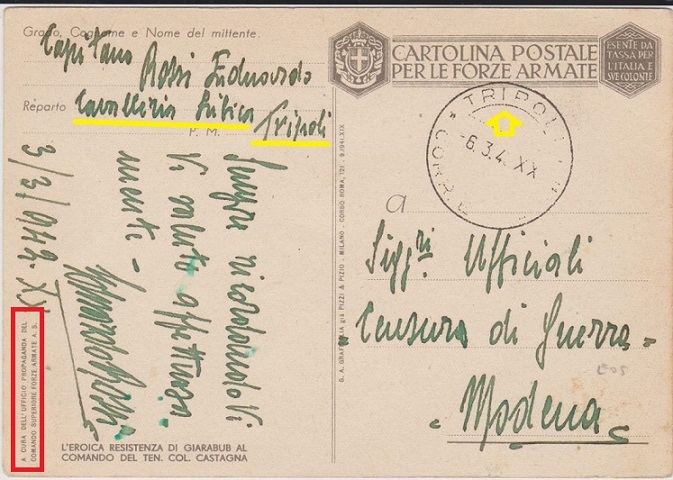 Grado, Cognome e Nome del mittente.
Capitano Rossi Eduardo
Reparto Cavalleria Libica
Tripoli
P. M.
CARTOLINA POSTALE
PER LE FORZE ARMATE
ESENTE DA
TASSA PER
L'ITALIA E
SVE COLONIE
TRIPOLI
-6.3.4 XX
CORR.
a
Sigg.ri Ufficiali
Censura di Guerra
Modena
3/3/942-XX
Sempre ricordandoVi
Vi saluto affettuosa
mente -
A CURA DELL'UFFICIO PROPAGANDA DEL
COMANDO SUPERIORE FORZE ARMATE A. S.
L'EROICA RESISTENZA DI GIARABUB AL
COMANDO DEL TEN. COL. CASTAGNA
S. A. GRAFITALIA già PIZZI & PIZIO - MILANO - CORDO ROMA, 121 - 9-1941-XIX